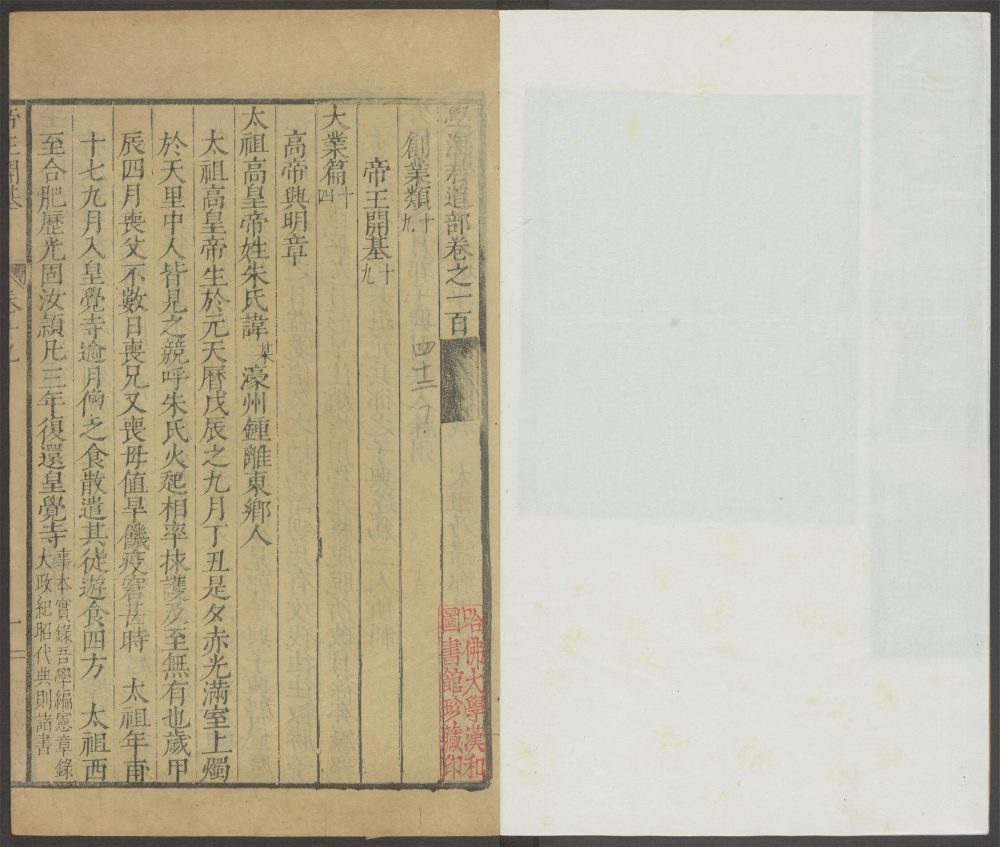 皇海君道部卷之一百
創業類十九
帝王開基十九
大業篇十四
高帝興明章
太祖高皇帝姓朱氏諱某濠州鍾離東鄉人
太祖高皇帝生於元天曆戊辰之九月丁丑是夕赤光滿室上燭
於天里中人皆見之競呼朱氏火起相率捄護及至無有也歲甲
辰四月喪父不數日喪兄又喪母值旱饑疫癘甚時 太祖年甫
十七九月入皇覺寺逾月僧乏食散遣其徒遊食四方 太祖西
至合肥歷光固汝潁凡三年復還皇覺寺事本實錄吾學編憲章錄
大政紀昭代典則諸書
帝王開基 卷十九 一
哈佛大學漢和
圖書館珍藏印